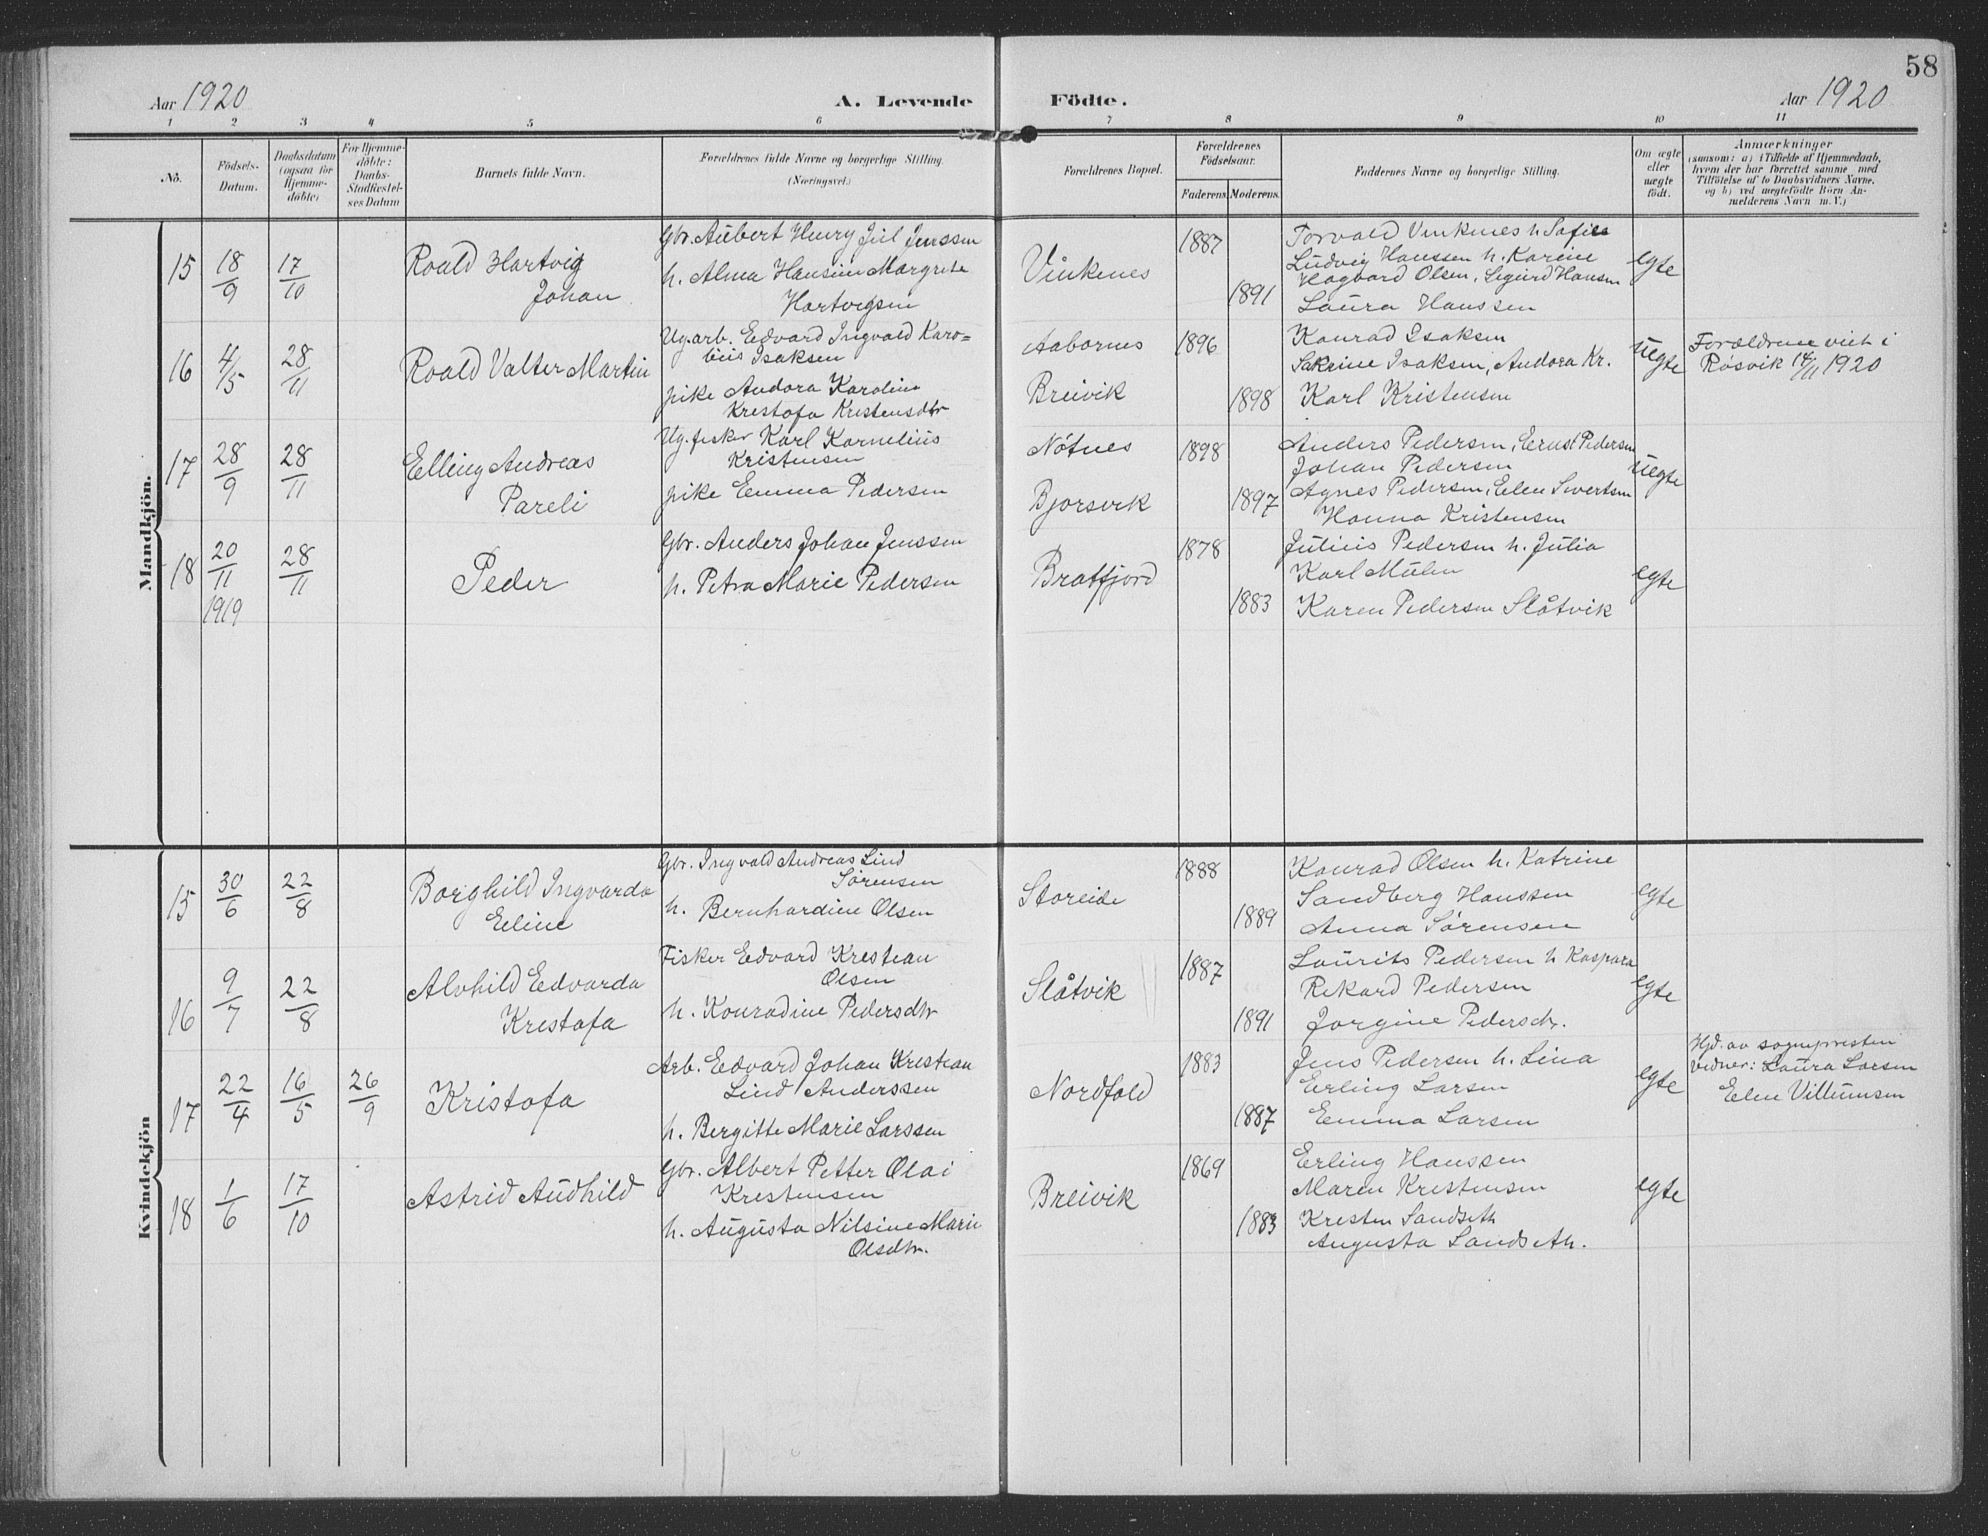 58
Aar 1920
A. Levende Födte.
Aar 1920
1 2 3 4 5 6 7 8 9 10 11
No.
Födsels-Datum.
Daabsdatum (ogsaa for Hjemme-döbte)
For Hjemme-döbte: Daabs-Stadfæstel-ses Datum
Barnets fulde Navn.
Forældrenes fulde Navne og borgerlige Stilling.
(Næringsvei.)
Forældrenes Bopæl.
Forældrenes Födselsaar.
Faderens. Moderens.
Faddernes Navne og borgerlige Stilling.
Om ægte eller uægte født.
Anmærkninger
(saasom: a) i Tilfælde af Hjemmedaab,
hvem der har forrettet samme med
Tilföielse af to Daabsvidners Navne,
og b) ved uægtefödte Börn An-
melderens Navn m. V.)
Mandkjön.
15 18/9 17/10 Roald Hartvig
Johan
Gbr. Aubert Henry Juel Jenssen
h. Alma Hansine Margrete
Hartvigsen
Vinkenes
1887
1891
Torvald Vinkenes h. Sofie
Ludvig Hanssen h. Karine
Hagbard Olsen, Sigurd Hansen
Laura Hanssen
egte
16 4/5 28/11 Roald Valter Martin
Ug.arb. Edvard Ingvald Karo=
lius Isaksen
pike Andora Karoline
Krestofa Kristensdtr
Aabornes
Breivik
1896
1898
Konrad Isaksen
Sakrine Isaksen, Andora Kr.
Karl Kristensen
uegte
Forældrene viet i
Røsvik 14/11 1920
17 28/9 28/11 Elling Andreas
Pareli
Ug. fisker Karl Kornelius
Kristensen
pike Emma Pedersen
Nötnes
Bjørsvik
1898
1897
Anders Pedersen, Ernst Pedersen
Johan Pedersen
Agnes Pedersen, Elen Sivertsen
Hanna Kristensen
uegte
18 20/11 1919 28/11 Peder
Gbr. Anders Johan Jenssen
h. Petra Marie Pedersen
Bratfjord
1878
1883
Julius Pedersen h. Julia
Karl Mülen
Karen Pedersen Slåtvik
egte
Kvindekjön
15 30/6 22/8 Borghild Ingvarda
Eline
Gbr. Ingvald Andreas Lind
Sørensen
h. Bernhardine Olsen
Storeide
1888
1889
Konrad Olsen h. Katrine
Sandberg Hanssen
Anna Sørensen
egte
16 9/7 22/8 Alvhild Edvarda
Krestofa
Fisker Edvard Krestian
Olsen
h. Konradine Pedersdtr
Slåtvik
1887
1891
Laurits Pedersen h Kaspara
Rikard Pedersen
Jorgine Pedersdtr.
egte
17 22/4 16/5 26/9 Kristofa
Arb. Edvard Johan Krestian
Lind Anderssen
h. Bergitte Marie Larssen
Nordfold
1883
1887
Jens Pedersen h. Lina
Erling Larsen
Emma Larsen
egte
Hjd. av sognepresten
Vidner: Laura Larsen
Elen Villumsen
18 1/6 17/10 Astrid Audhild
Gbr. Albert Petter Olai
Krestensen
h. Augusta Nilsine Marie
Olsdtr.
Breivik
1869
1883
Erling Hanssen
Maren Kristensen
Kresten Sandseth
Augusta Sandseth.
egte